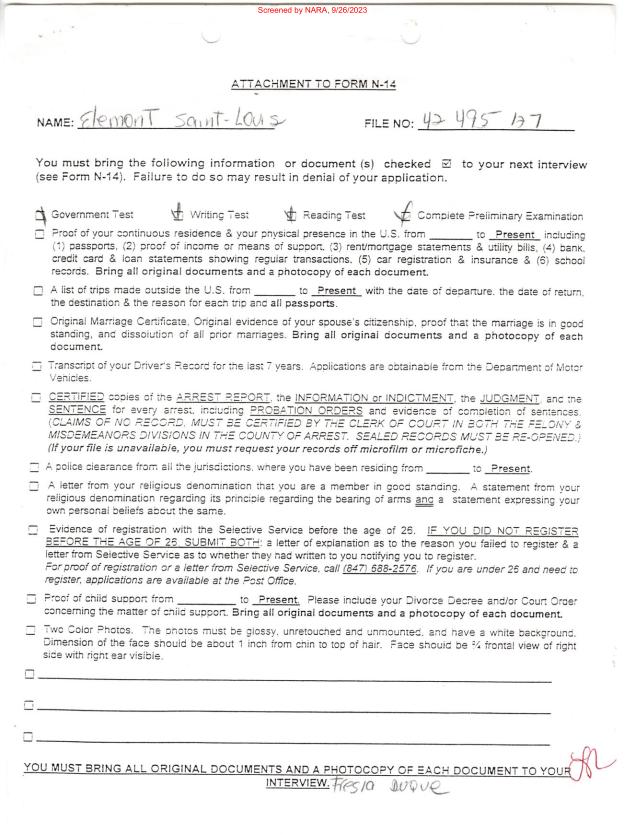 Screened by NARA, 9/26/2023
ATTACHMENT TO FORM N-14
NAME: Elemont Saint-Louis FILE NO: 42 495 127
You must bring the following information or document (s) checked ☑ to your next interview
(see Form N-14). Failure to do so may result in denial of your application.
Government Test Writing Test Reading Test Complete Preliminary Examination
☐ Proof of your continuous residence & your physical presence in the U.S. from ________ to Present including
(1) passports, (2) proof of income or means of support, (3) rent/mortgage statements & utility bills, (4) bank,
credit card & loan statements showing regular transactions, (5) car registration & insurance & (6) school
records. Bring all original documents and a photocopy of each document.
☐ A list of trips made outside the U.S. from ________ to Present with the date of departure, the date of return,
the destination & the reason for each trip and all passports.
☐ Original Marriage Certificate, Original evidence of your spouse's citizenship, proof that the marriage is in good
standing, and dissolution of all prior marriages. Bring all original documents and a photocopy of each
document.
☐ Transcript of your Driver's Record for the last 7 years. Applications are obtainable from the Department of Motor
Vehicles.
☐ CERTIFIED copies of the ARREST REPORT, the INFORMATION or INDICTMENT, the JUDGMENT, and the
SENTENCE for every arrest, including PROBATION ORDERS and evidence of completion of sentences.
(CLAIMS OF NO RECORD, MUST BE CERTIFIED BY THE CLERK OF COURT IN BOTH THE FELONY &
MISDEMEANORS DIVISIONS IN THE COUNTY OF ARREST. SEALED RECORDS MUST BE RE-OPENED.)
(If your file is unavailable, you must request your records off microfilm or microfiche.)
☐ A police clearance from all the jurisdictions, where you have been residing from ________ to Present.
☐ A letter from your religious denomination that you are a member in good standing. A statement from your
religious denomination regarding its principle regarding the bearing of arms and a statement expressing your
own personal beliefs about the same.
☐ Evidence of registration with the Selective Service before the age of 26. IF YOU DID NOT REGISTER
BEFORE THE AGE OF 26, SUBMIT BOTH: a letter of explanation as to the reason you failed to register & a
letter from Selective Service as to whether they had written to you notifying you to register.
For proof of registration or a letter from Selective Service, call (847) 688-2576. If you are under 26 and need to
register, applications are available at the Post Office.
☐ Proof of child support from ________ to Present. Please include your Divorce Decree and/or Court Order
concerning the matter of child support. Bring all original documents and a photocopy of each document.
☐ Two Color Photos. The photos must be glossy, unretouched and unmounted, and have a white background.
Dimension of the face should be about 1 inch from chin to top of hair. Face should be ¾ frontal view of right
side with right ear visible.
YOU MUST BRING ALL ORIGINAL DOCUMENTS AND A PHOTOCOPY OF EACH DOCUMENT TO YOUR
INTERVIEW. Fresia Duque